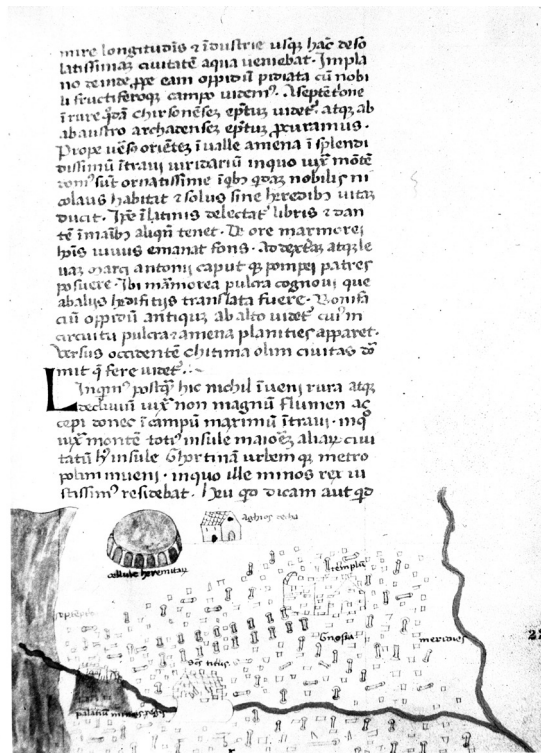 mire longitudīs & īdustrie usqȝ hāc deso
latissimaȝ civitatē aqua veniebat. Impla
no deinde ꝓpe eam oppidū pidiata cū nobi
li fructiferoqȝ campo videmꝰ. Aseptētione
ī rure chirsonēseȝ eptuȝ videt atqȝ ab
ab austro archadenseȝ eptuȝ ꝓcuramus.
Prope vērsꝰ orienteȝ ī valle amena ī splendi
dissimū ītravi viridariū inquo montē
sūt ornatissime nobilis ni
colaus habitat & solus sine heredibꝰ vitaȝ
ducit. ī latinis delectat libris & dan
tē ī manibꝰ aliqn̄ tenet. De ore marmorei
vivus emanat fons. Ad dextaȝ atqȝ le
vaȝ marci antonii caput qȝ pompei patres
posuere. Ibi mārmorea pulcra cognovi que
ab aliis hedifitiis translata fuere. Bonifa
ciū oppidū antiquȝ ab alto videt cuiꝰ in
circuitu pulcra & amena planities apparet.
Versus occidentē chitima olim civitas dōr
mit q̄ fere videt.
Linqimꝰ postqȝ hic nichil īveni rura atqȝ
declivium non magnū flumen ac
cepi donec ī campū maximū ītravi. inqꝰ
montē totiꝰ insule maioreȝ aliaȝ civi
tatū insule Ghortinā urbem qȝ metro
polim inveni. inquo ille minos rex iu
stissimꝰ residebat. Heu qd dicam aut qd
aghios
cellule heremitaȝ
templa
Gnosia
meridies
scs titus
palatiū minois regis